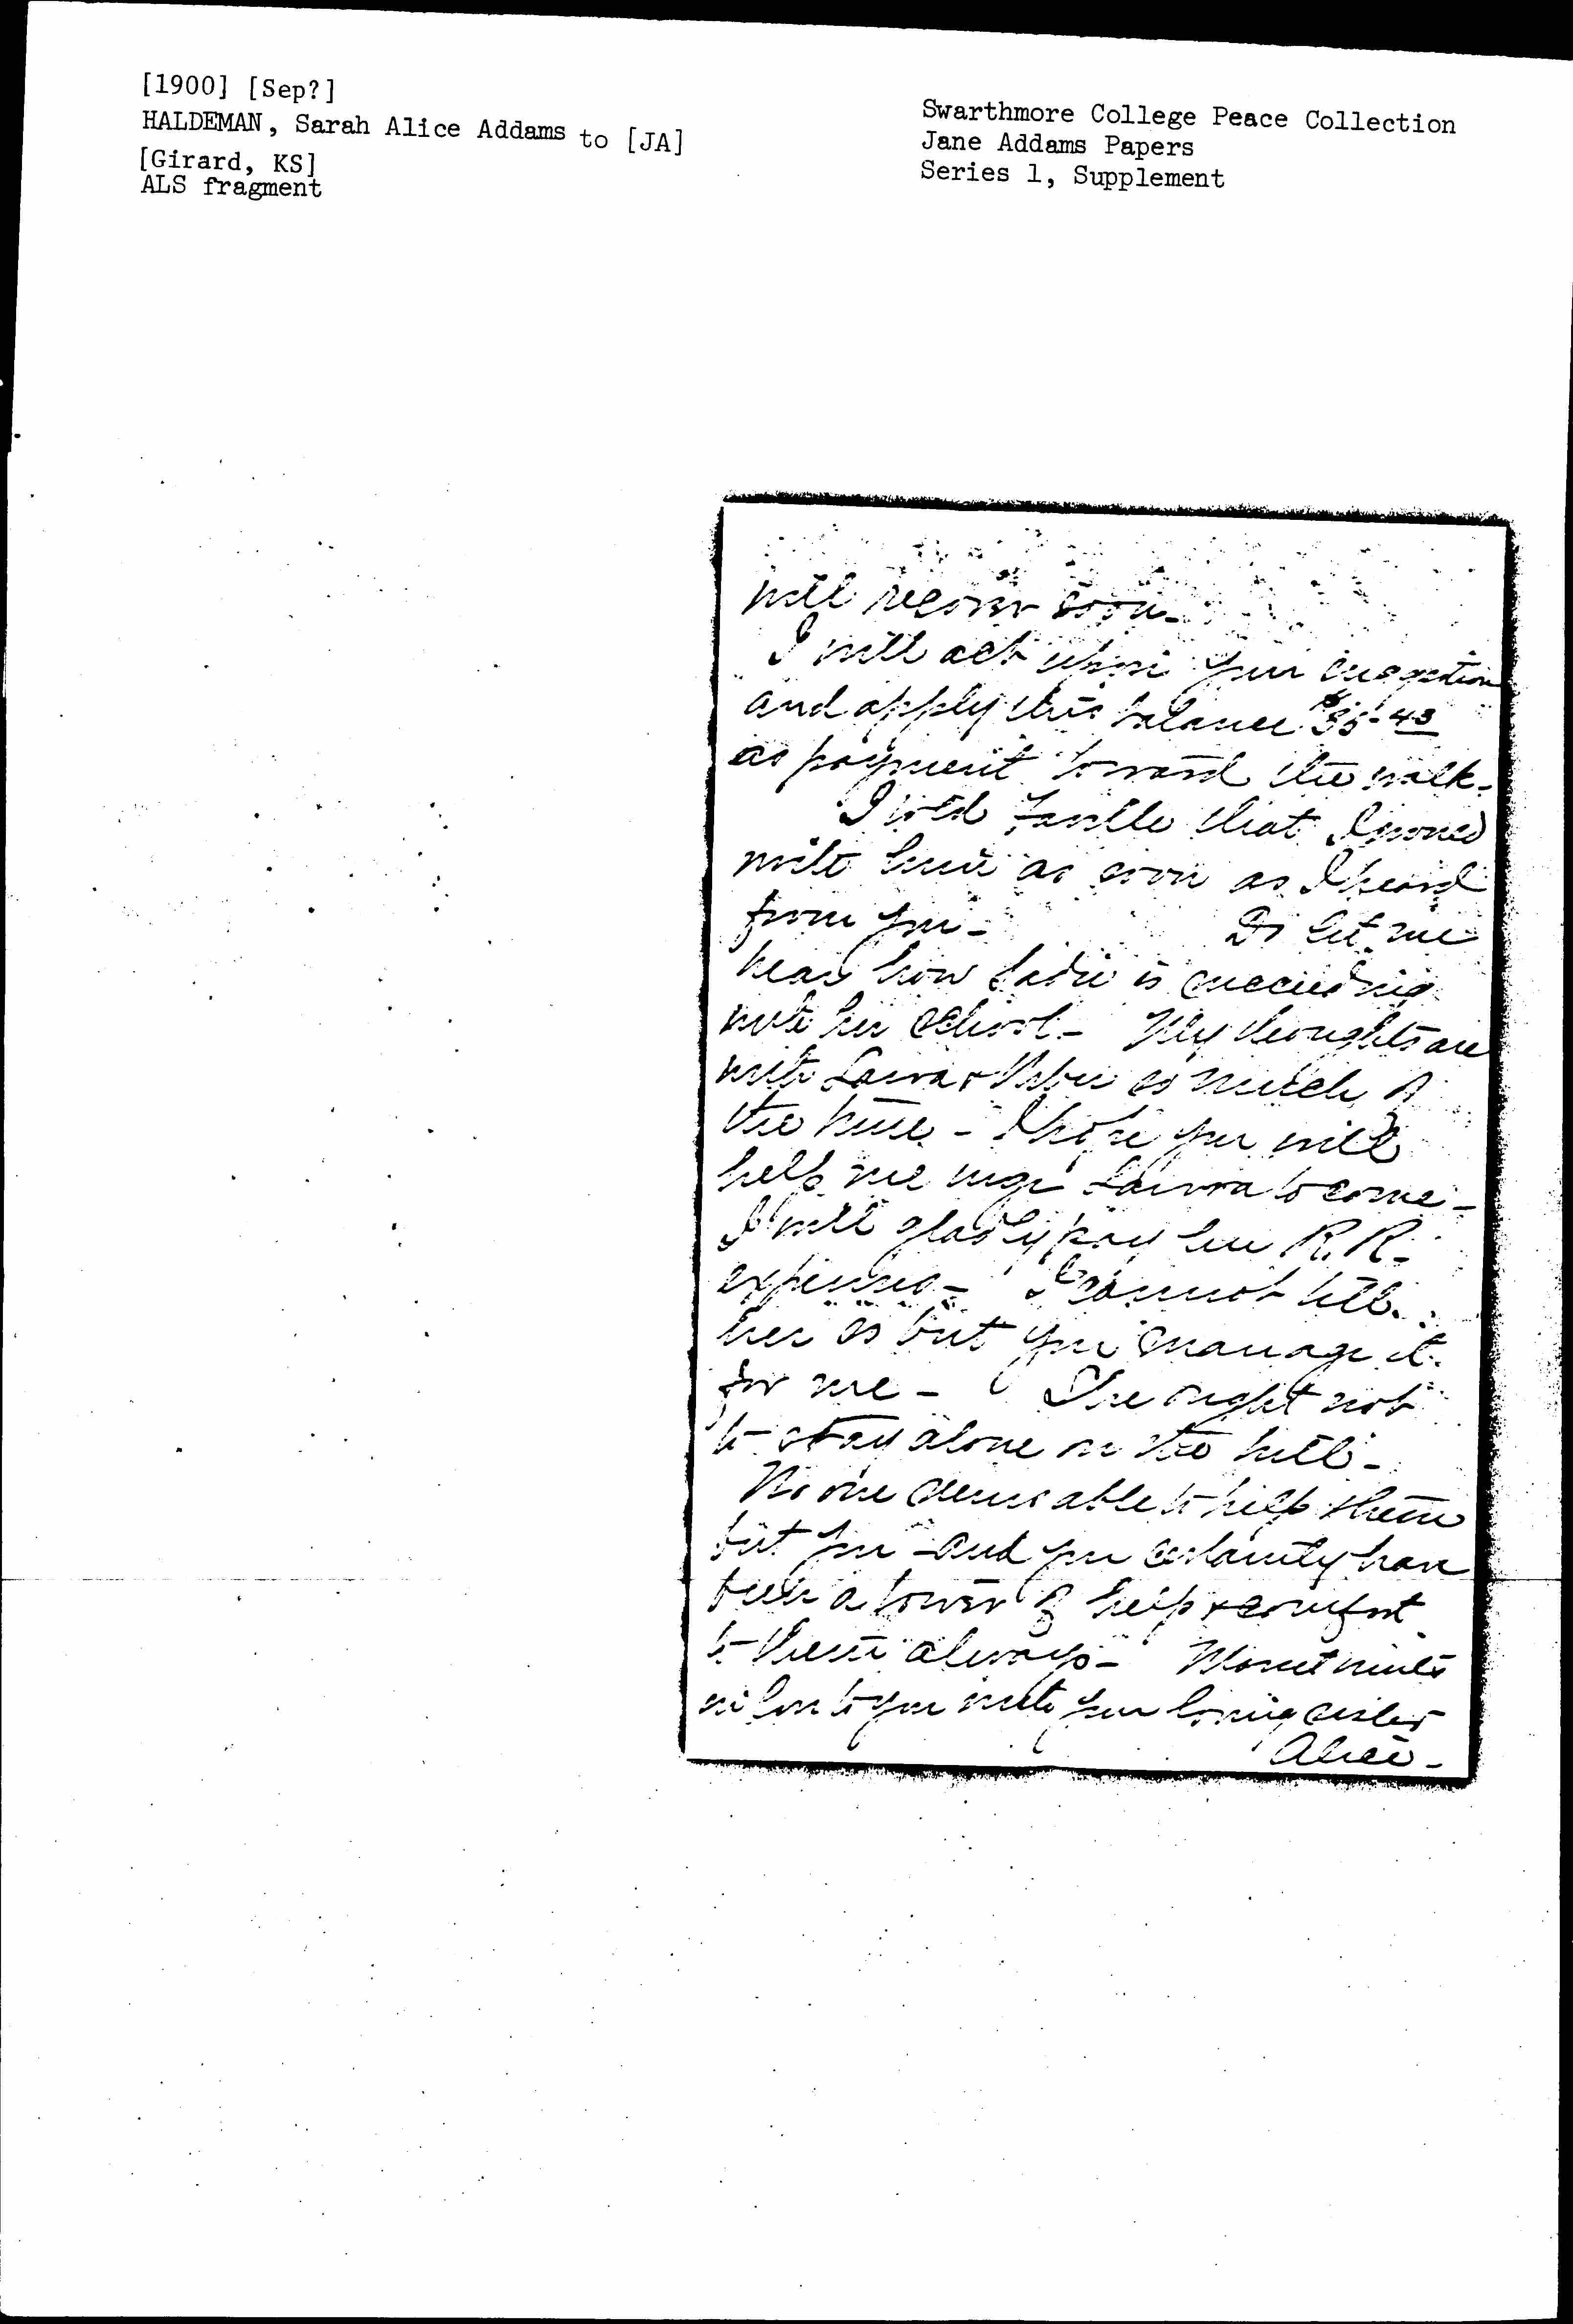 [1900] [Sep?]
HALDEMAN, Sarah Alice Addams to [JA]
[Girard, KS]
ALS fragment
Swarthmore College Peace Collection
Jane Addams Papers
Series 1, Supplement
will recover soon-
I will act upon your suggestion
and apply this balance $35-43
as payment toward the walk-
I told that I would
write him as soon as I heard
from you- Do let me
hear how Sadie is succeeding
with her school- My thoughts are
with Laura & so much of
the time- I hope you will
help me urge Laura to come-
I will gladly pay her R. R.
expenses- I cannot tell
her so but you manage it
for me- She ought not
to stay alone on the hill-
No one seems able to help them
but you and you certainly have
been a tower of help & comfort
to them always- Marcet unites
in love to you with your loving sister
Alice-